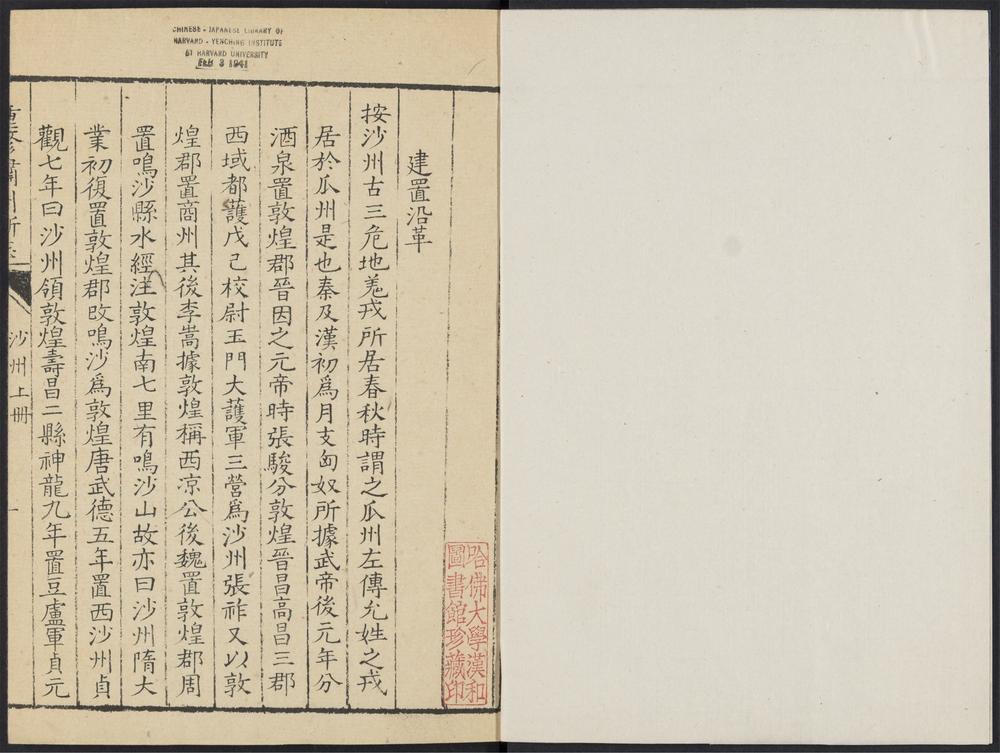 CHINESE - JAPANESE LIBRARY OF
HARVARD - YENCHING INSTITUTE
AT HARVARD UNIVERSITY
FEB 3 1941
哈佛大學漢和
圖書館珍藏印
建置沿革
按沙州古三危地羌戎所居春秋時謂之瓜州左傳允姓之戎
居於瓜州是也秦及漢初爲月支匈奴所據武帝後元年分
酒泉置敦煌郡晉因之元帝時張駿分敦煌晉昌高昌三郡
西域都護戊己校尉玉門大護軍三營爲沙州張祚又以敦
煌郡置商州其後李暠據敦煌稱西凉公後魏置敦煌郡周
置鳴沙縣水經注敦煌南七里有鳴沙山故亦曰沙州隋大
業初復置敦煌郡改鳴沙爲敦煌唐武德五年置西沙州貞
觀七年曰沙州領敦煌壽昌二縣神龍九年置豆盧軍貞元
重修肅州新志
沙州上冊
一